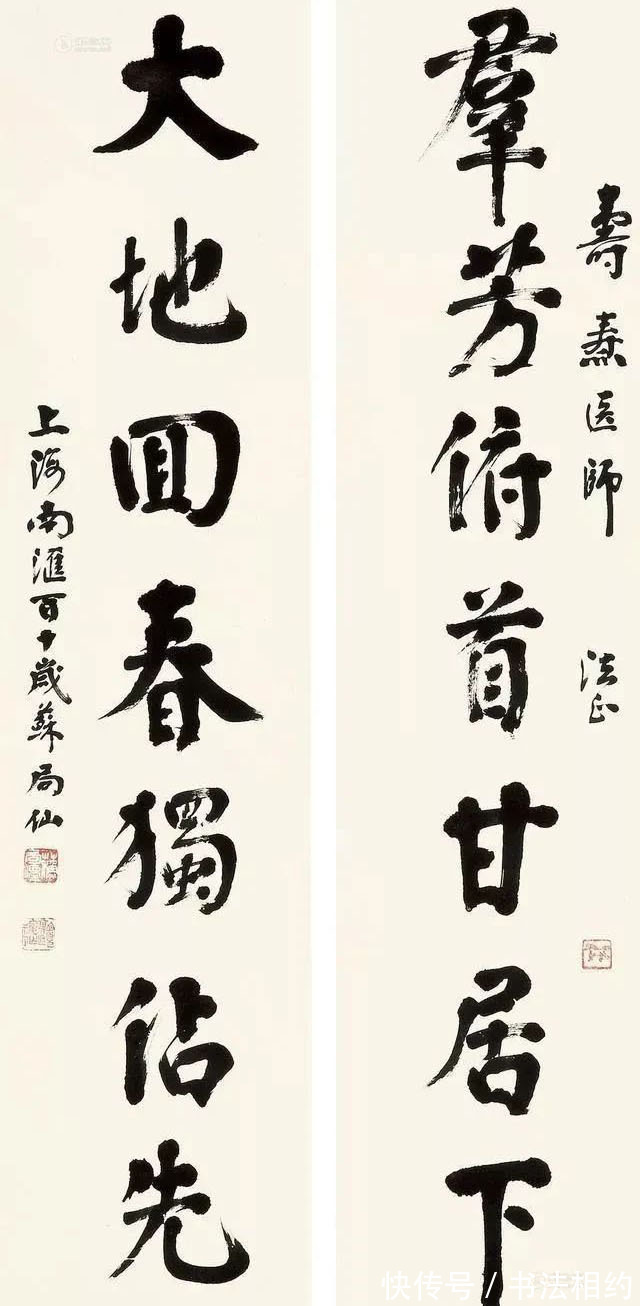 壽燾医師 法正
羣芳俯首甘居下
大地回春獨佔先
上海南滙百十歲蘇局仙
快传号/书法相约